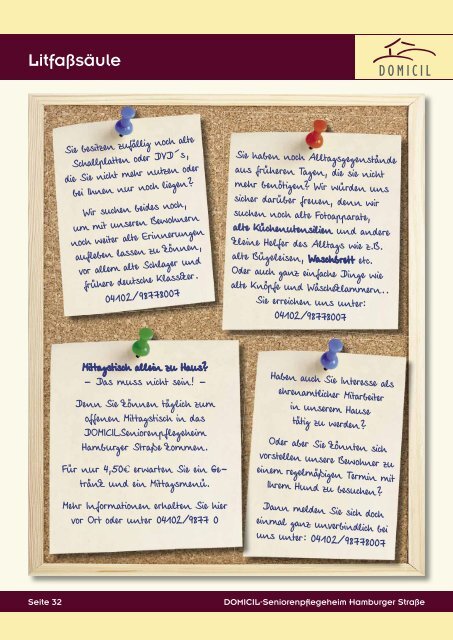 Litfaßsäule
DOMICIL
Sie besitzen zufällig noch alte
Schallplatten oder DVD´s,
die Sie nicht mehr nutzen oder
bei Ihnen nur noch liegen?
Wir suchen beides noch,
um mit unseren Bewohnern
noch weiter alte Erinnerungen
aufleben lassen zu können,
vor allem alte Schlager und
frühere deutsche Klassiker.
04102/98778007
Sie haben noch Alltagsgegenstände
aus früheren Tagen, die sie nicht
mehr benötigen? Wir würden uns
sicher darüber freuen, denn wir
suchen noch alte Fotoapparate,
alte Küchenutensilien und andere
kleine Helfer des Alltags wie z.B.
alte Bügeleisen, Waschbrett etc.
Oder auch ganz einfache Dinge wie
alte Knöpfe und Wäscheklammern..
Sie erreichen uns unter:
04102/98778007
Mittagstisch allein zu Haus?
– Das muss nicht sein! –
Denn Sie können täglich zum
offenen Mittagstisch in das
DOMICIL-Seniorenpflegeheim
Hamburger Straße kommen.
Für nur 4,50€ erwarten Sie ein Ge-
tränk und ein Mittagsmenü.
Mehr Informationen erhalten Sie hier
vor Ort oder unter 04102/9877 0
Haben auch Sie Interesse als
ehrenamtlicher Mitarbeiter
in unserem Hause
tätig zu werden?
Oder aber Sie könnten sich
vorstellen unsere Bewohner zu
einem regelmäßigen Termin mit
Ihrem Hund zu besuchen?
Dann melden Sie sich doch
einmal ganz unverbindlich bei
uns unter: 04102/98778007
Seite 32
DOMICIL-Seniorenpflegeheim Hamburger Straße